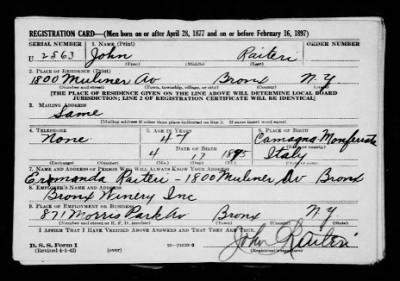 REGISTRATION CARD—(Men born on or after April 28, 1877 and on or before February 16, 1897)
SERIAL NUMBER 1. NAME (Print) ORDER NUMBER
U 2563 John Raiteri
(First) (Middle) (Last)
2. PLACE OF RESIDENCE (Print)
1800 Muliner Av Bronx N.Y
(Number and street) (Town, township, village, or city) (County) (State)
[THE PLACE OF RESIDENCE GIVEN ON THE LINE ABOVE WILL DETERMINE LOCAL BOARD
JURISDICTION; LINE 2 OF REGISTRATION CERTIFICATE WILL BE IDENTICAL]
3. MAILING ADDRESS
Same
[Mailing address if other than place indicated on line 2. If same insert word same]
4. TELEPHONE 5. AGE IN YEARS 6. PLACE OF BIRTH
None 47 Camagna Monferrato
DATE OF BIRTH
4 17 1895 Italy
(Exchange) (Number) (Mo.) (Day) (Yr.) (State or country)
7. NAME AND ADDRESS OF PERSON WHO WILL ALWAYS KNOW YOUR ADDRESS
Ermonda Raiteri - 1800 Muliner Av Bronx
8. EMPLOYER'S NAME AND ADDRESS
Bronx Winery Inc
9. PLACE OF EMPLOYMENT OR BUSINESS
871 Morris Park Av Bronx N.Y
(Number and street or R. F. D. number) (Town) (County) (State)
I AFFIRM THAT I HAVE VERIFIED ABOVE ANSWERS AND THAT THEY ARE TRUE.
John Raiteri
D. S. S. Form 1
(Revised 4-1-42) (over)